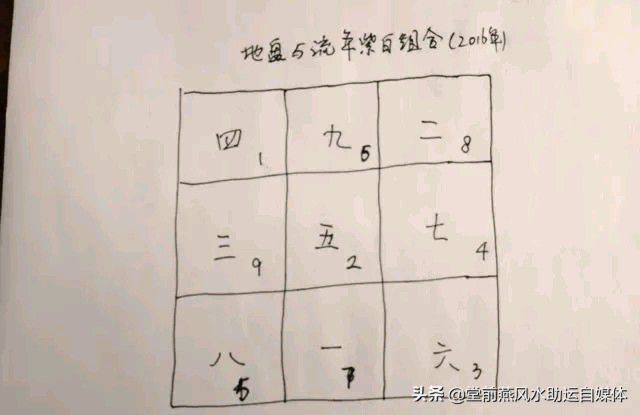 地盘与流年紫白组合(2016年)
四1 九6 二8
三9 五2 七4
八5 一7 六3
头条 @堂前燕风水助运自媒体